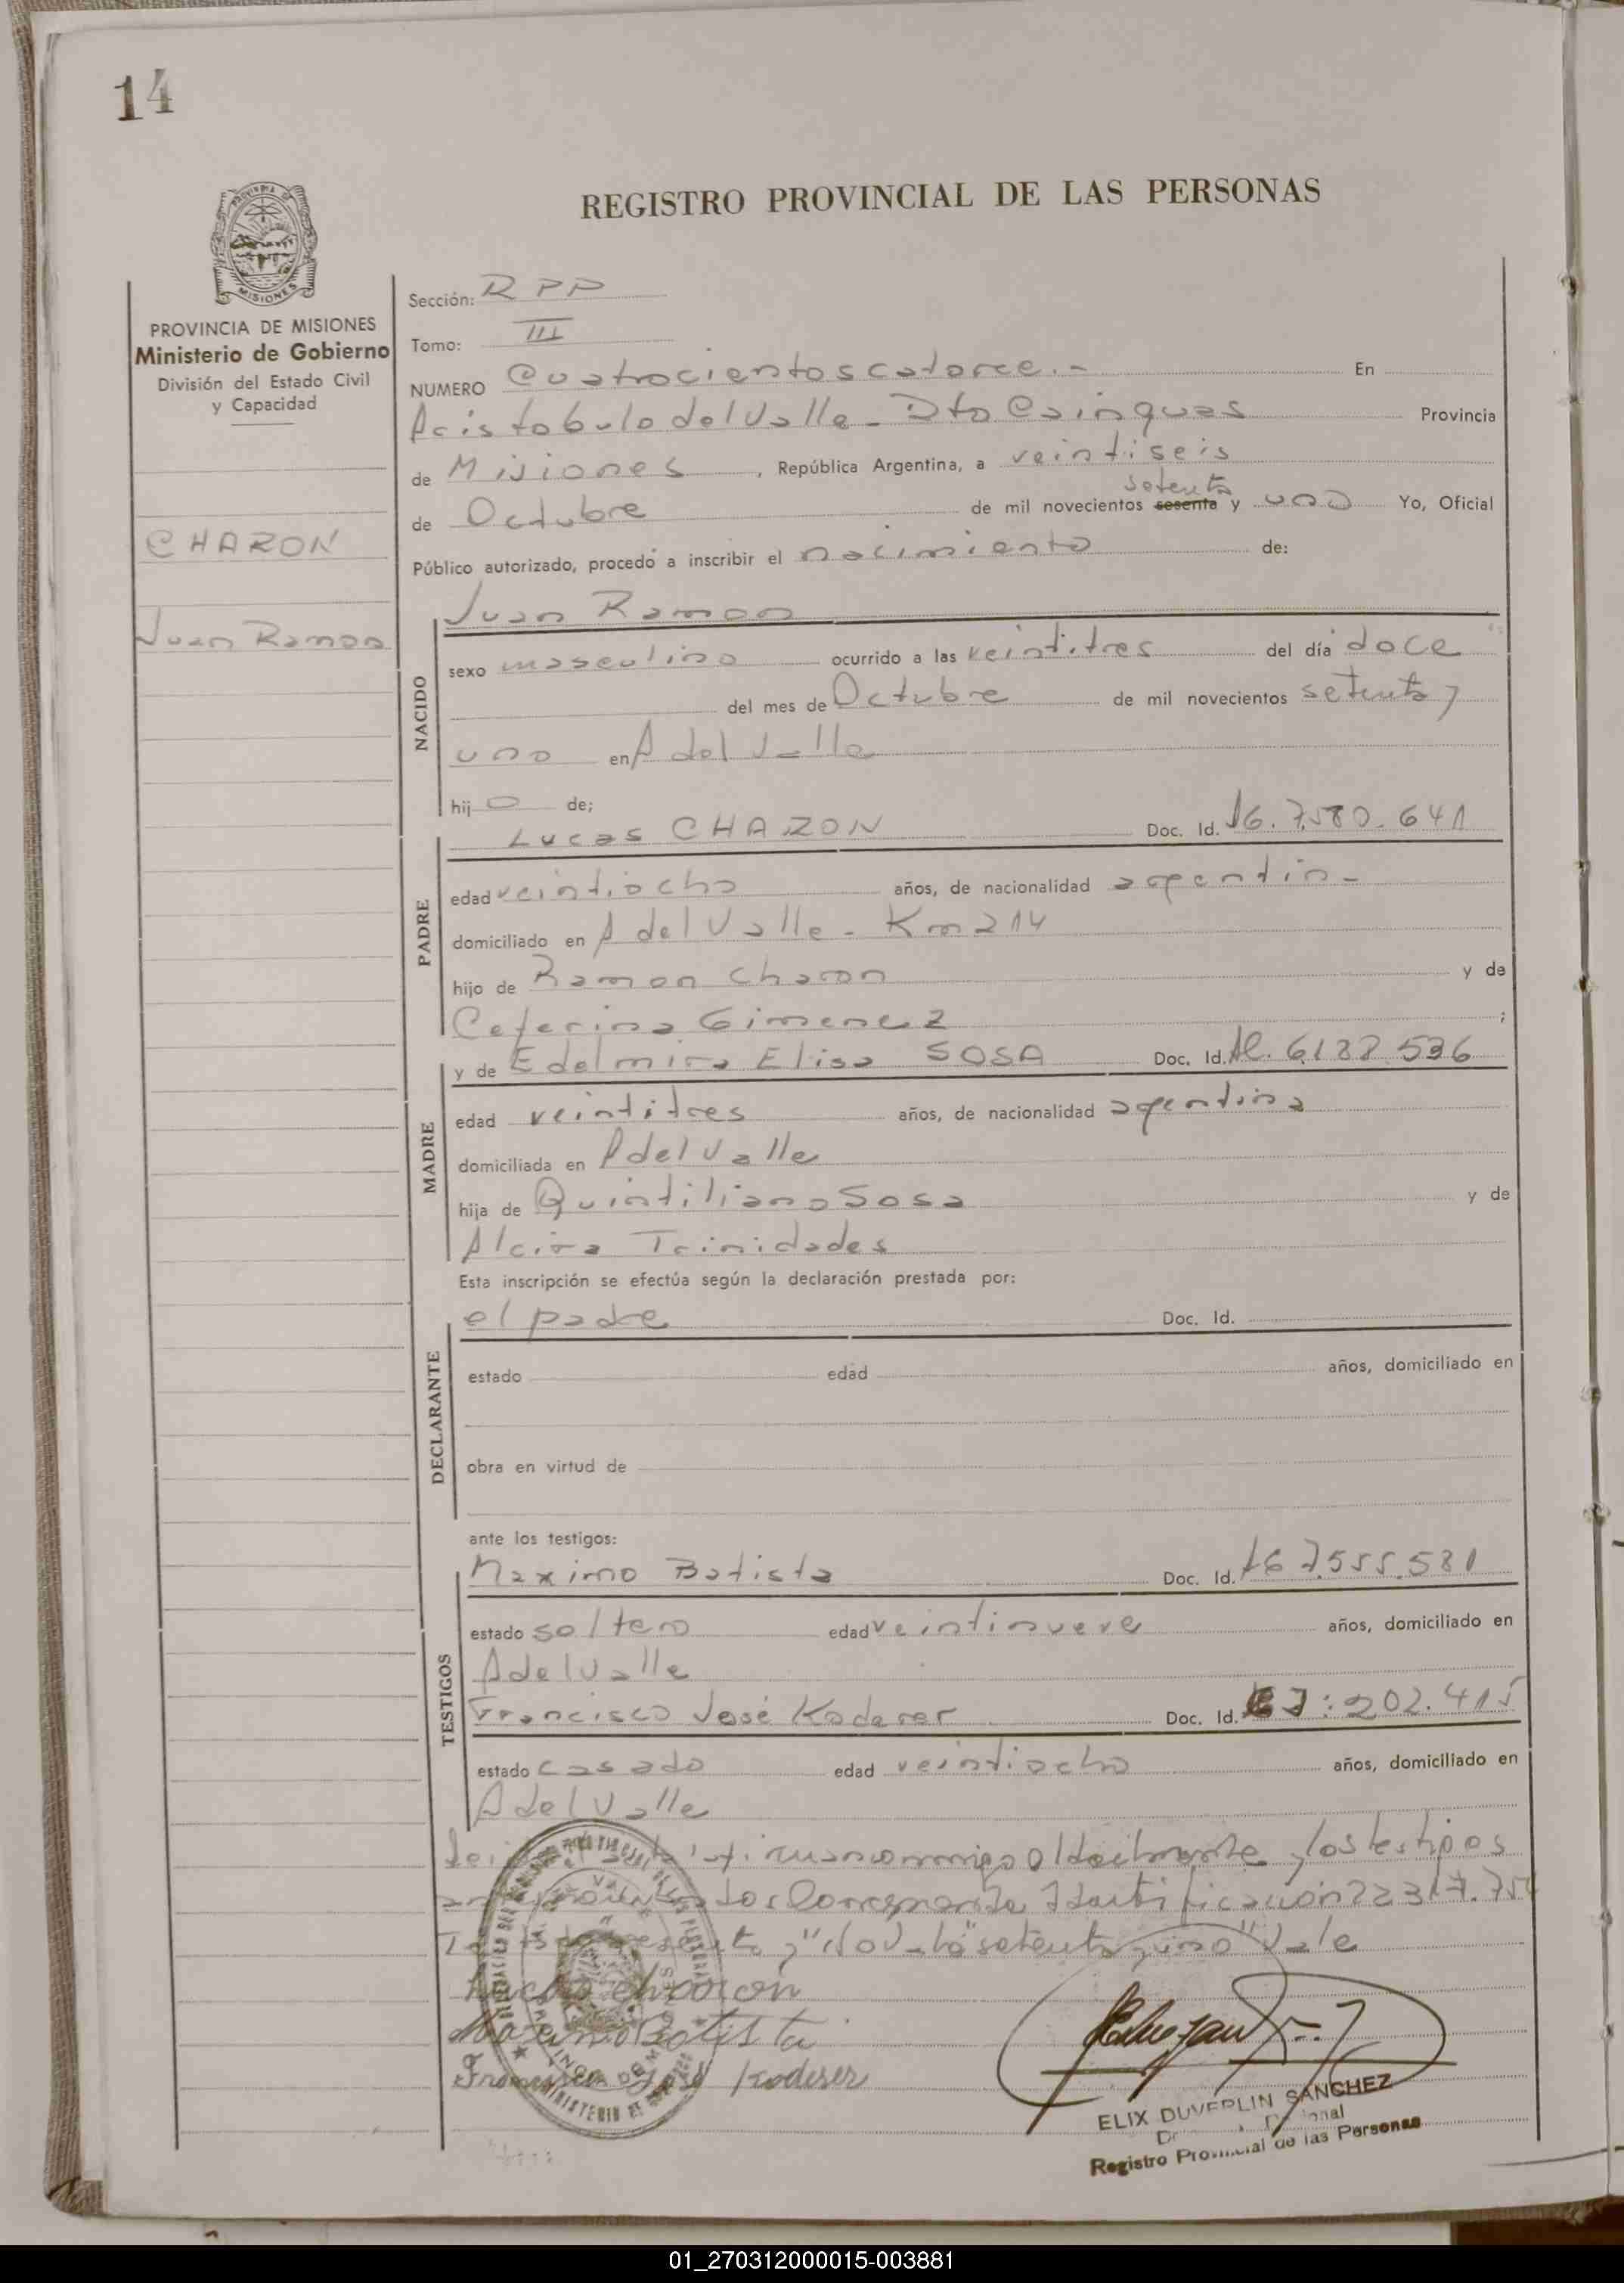 14
REGISTRO PROVINCIAL DE LAS PERSONAS
PROVINCIA
MISIONES
PROVINCIA DE MISIONES
Ministerio de Gobierno
División del Estado Civil
y Capacidad
CHARON
Juan Ramon
Sección: RPP
Tomo: III
NUMERO Cuatrocientos catorce.- En
Aristobulo del Valle - Dto Cainguas Provincia
de Misiones, República Argentina, a veintiseis
setenta
de Octubre de mil novecientos sesenta y uno Yo, Oficial
Público autorizado, procedo a inscribir el nacimiento de:
Juan Ramon
NACIDO
sexo masculino ocurrido a las veintitres del día doce
del mes de Octubre de mil novecientos setenta y
uno en A del Valle
hij o de;
PADRE
Lucas CHARON Doc. Id. 7.580.641
edad veintiocho años, de nacionalidad argentin-
domiciliado en A del Valle - Km 214
hijo de Ramon Charon y de
Ceferina Gimenez ;
MADRE
y de Edelmira Elisa SOSA Doc. Id. 6.188.536
edad veintitres años, de nacionalidad argentina
domiciliada en A del Valle
hija de Quintiliano Sosa y de
Alcira Trinidades
Esta inscripción se efectúa según la declaración prestada por:
DECLARANTE
el padre Doc. Id.
estado edad años, domiciliado en
obra en virtud de
ante los testigos:
TESTIGOS
Maximo Batista Doc. Id. 7.555.581
estado soltero edad veintinueve años, domiciliado en
A del Valle
Francisco José Koderer Doc. Id. : 202.415
estado casado edad veintiocho años, domiciliado en
A del Valle
conmigo el declarante y los testigos
Identificacion 22317.75
setenta y uno" Vale
charon
Maximo Batista
Francisco José Koderer
ELIX DUVERLIN SANCHEZ
Registro Provincial de las Personas
01_270312000015-003881